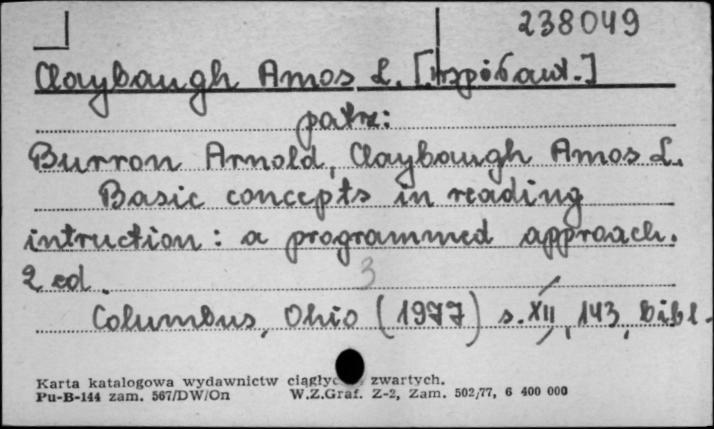 238049
Claybaugh Amos L. [współaut.]
patrz:
Burron Arnold, Claybough Amos L.
Basic concepts in reading
intruction: a programmed approach.
2 ed. 3
Columbus, Ohio (1977) s. XII, 143, bibl.
Karta katalogowa wydawnictw zwartych.
Pu-B-144 zam. 567/DW/On W.Z.Graf. Z-2, Zam. 502/77, 6 400 000